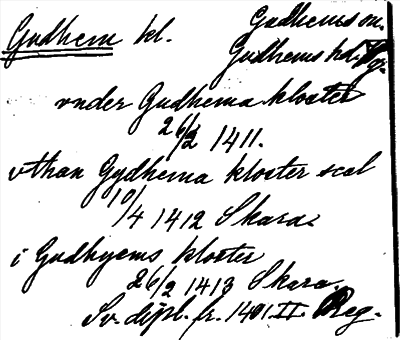 Gudhem kl. Gudhems sn.
Gudhems hd. Vg.
vnder Gudhema kloster
26/2 1411.
vthan Gydhema kloster scal
10/4 1412 Skara.
i Gudhyems kloster
26/2 1413 Skara.
Sv. dipl. fr. 1401. II. Reg.